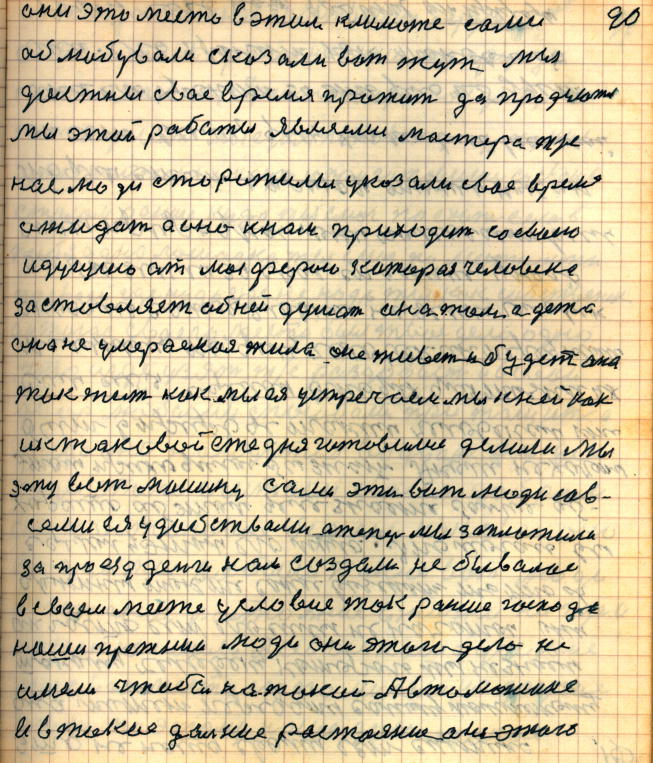 они это место в этим климоте сами 90
облюбували сказали вот жут мы
должны свое время прожит да продукты
мы этой работы являеми мастера
нас люди сторожилы указали свое время
ожидат а оно к нам приходит со своею
идущую ат мосферою которая человека
заставляет об ней думат она там а дето
она не умераемая жила она живет и будет она
так жит как мы ея устречаем мы к ней как
ик таковой сегодня готовимся делили мы
эту вот машину сами эти вот люди сов-
семи ея удобствами а тепер мы заплотили
за проезд денги нам создали не бывалае
в своем месте условие так ранше господа
наши прежнии люди они этого дело не
имели чтобы на такой Автомашине
И в такое далнее растояние они этого